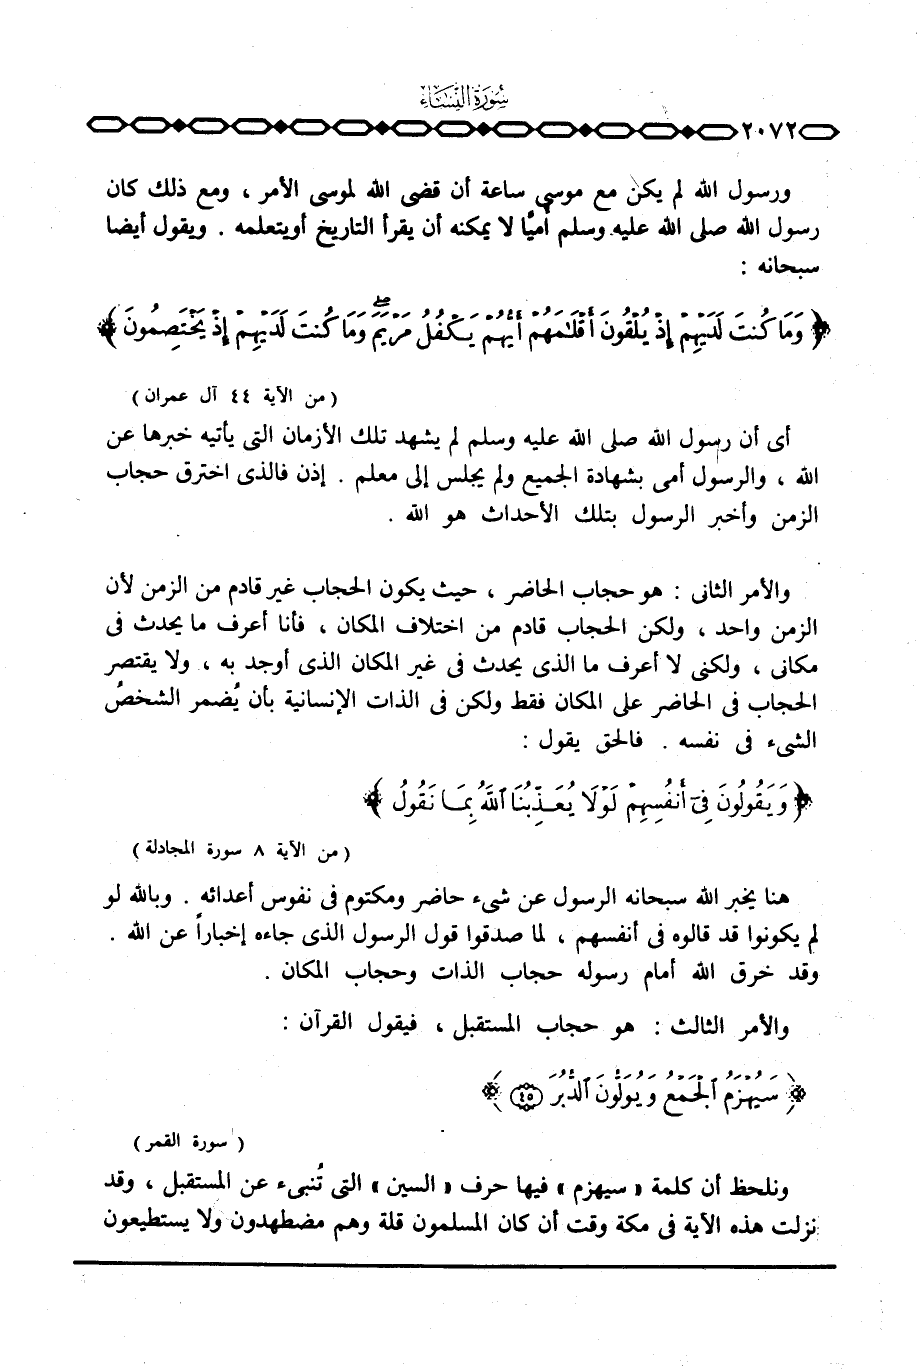 سُورَةُ النِّسَاء
٢٠٧٢
ورسول الله لم يكن مع موسى ساعة أن قضى الله لموسى الأمر ، ومع ذلك كان
رسول الله صلى الله عليه وسلم أميًّا لا يمكنه أن يقرأ التاريخ أويتعلمه . ويقول أيضا
سبحانه :
﴿ وَمَا كُنتَ لَدَيْهِمْ إِذْ يُلْقُونَ أَقْلَـٰمَهُمْ أَيُّهُمْ يَكْفُلُ مَرْيَمَ ۖ وَمَا كُنتَ لَدَيْهِمْ إِذْ يَخْتَصِمُونَ ﴾
( من الآية ٤٤ آل عمران )
أى أن رسول الله صلى الله عليه وسلم لم يشهد تلك الأزمان التى يأتيه خبرها عن
الله ، والرسول أمى بشهادة الجميع ولم يجلس إلى معلم . إذن فالذى اخترق حجاب
الزمن وأخبر الرسول بتلك الأحداث هو الله .
والأمر الثانى : هو حجاب الحاضر ، حيث يكون الحجاب غير قادم من الزمن لأن
الزمن واحد ، ولكن الحجاب قادم من اختلاف المكان ، فأنا أعرف ما يحدث فى
مكانى ، ولكنى لا أعرف ما الذى يحدث فى غير المكان الذى أوجد به ، ولا يقتصر
الحجاب فى الحاضر على المكان فقط ولكن فى الذات الإنسانية بأن يُضمر الشخصُ
الشىء فى نفسه . فالحق يقول :
﴿ وَيَقُولُونَ فِىٓ أَنفُسِهِمْ لَوْلَا يُعَذِّبُنَا ٱللَّهُ بِمَا نَقُولُ ﴾
( من الآية ٨ سورة المجادلة )
هنا يخبر الله سبحانه الرسول عن شىء حاضر ومكتوم فى نفوس أعدائه . وبالله لو
لم يكونوا قد قالوه فى أنفسهم ، لما صدقوا قول الرسول الذى جاءه إخباراً عن الله .
وقد خرق الله أمام رسوله حجاب الذات وحجاب المكان .
والأمر الثالث : هو حجاب المستقبل ، فيقول القرآن :
﴿ سَيُهْزَمُ ٱلْجَمْعُ وَيُوَلُّونَ ٱلدُّبُرَ ٤٥ ﴾
( سورة القمر )
ونلحظ أن كلمة « سيهزم » فيها حرف « السين » التى تُنبىء عن المستقبل ، وقد
نزلت هذه الآية فى مكة وقت أن كان المسلمون قلة وهم مضطهدون ولا يستطيعون